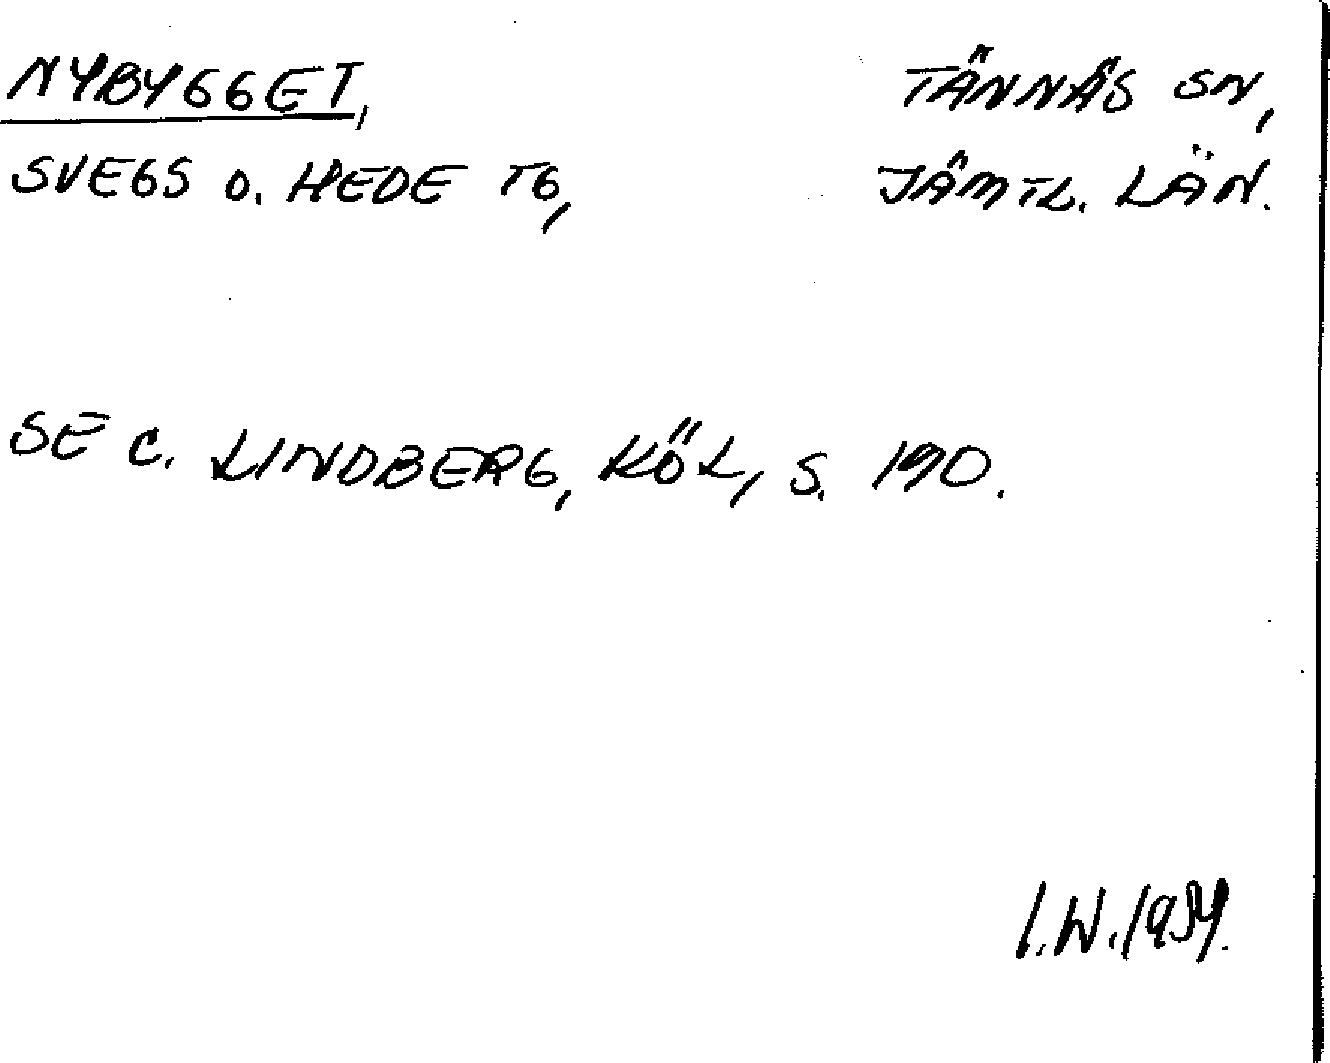 NYBYGGET, TÄNNÄS SN,
SVEGS O. HEDE TG, JÄMTL. LÄN.
SE C. LINDBERG, KÖL, S. 190.
I.W.